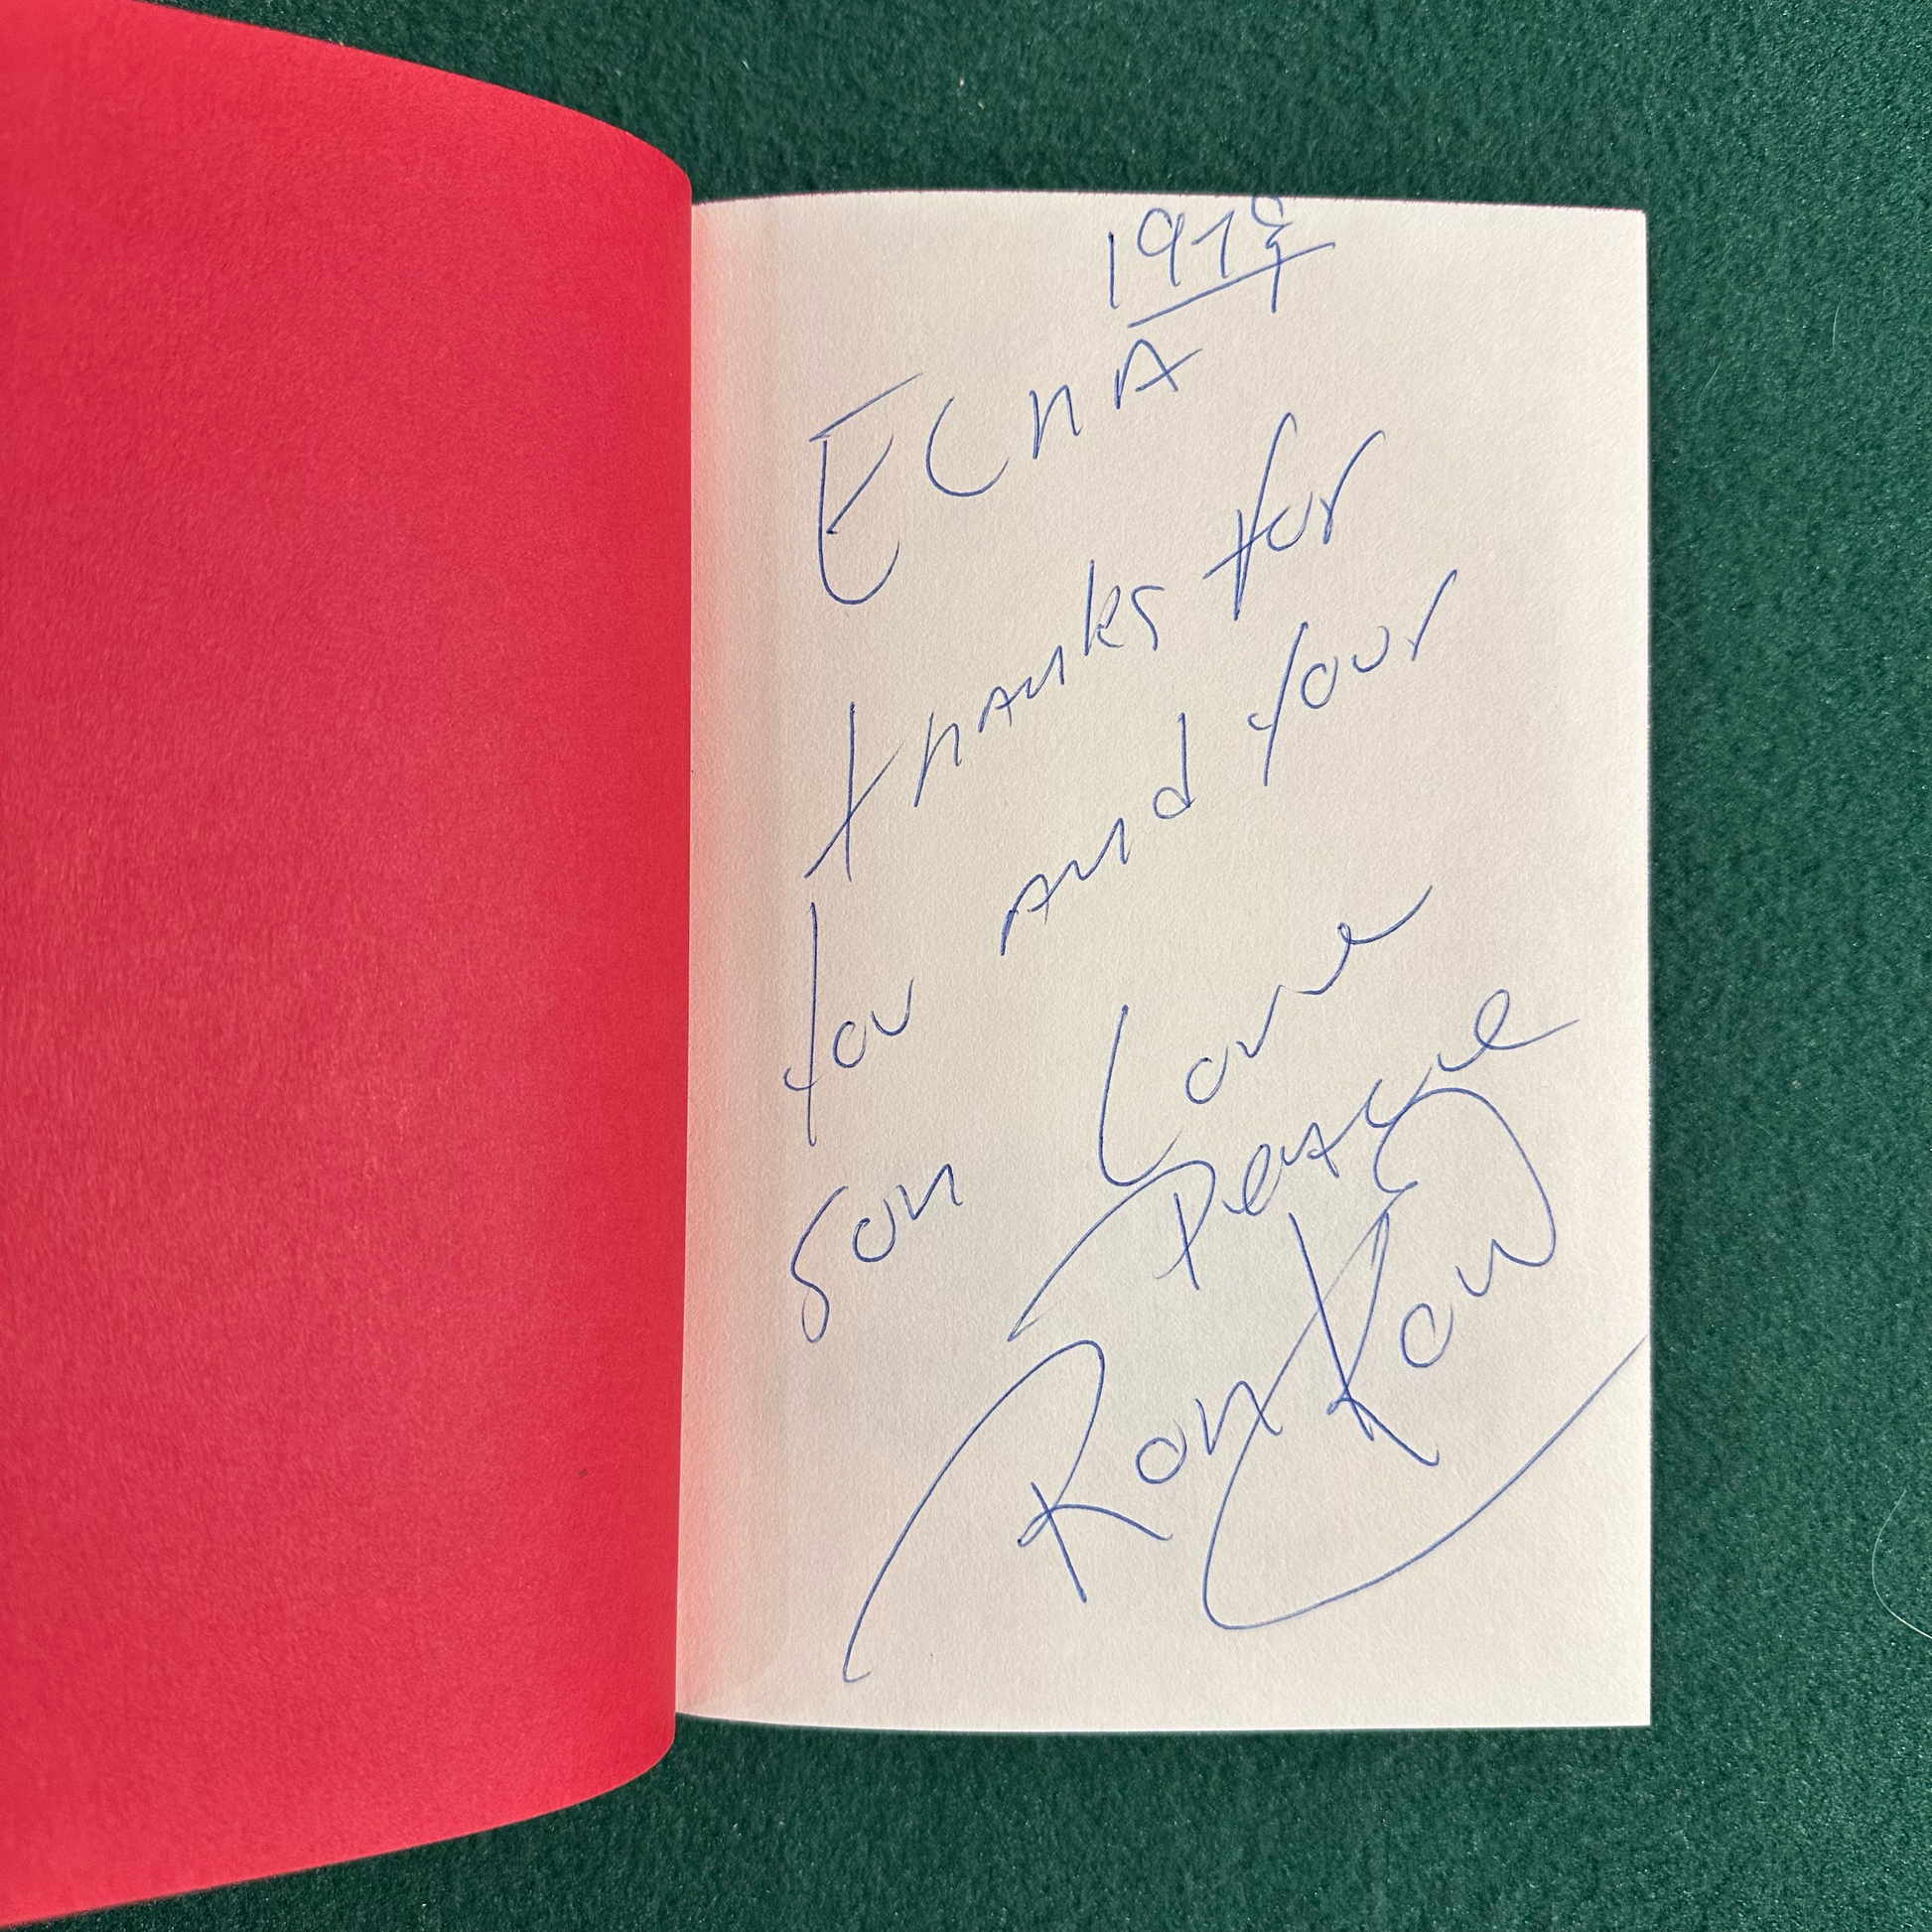 1978
ECNA
thanks for
you and your
son Love
Peace
Ron Kow